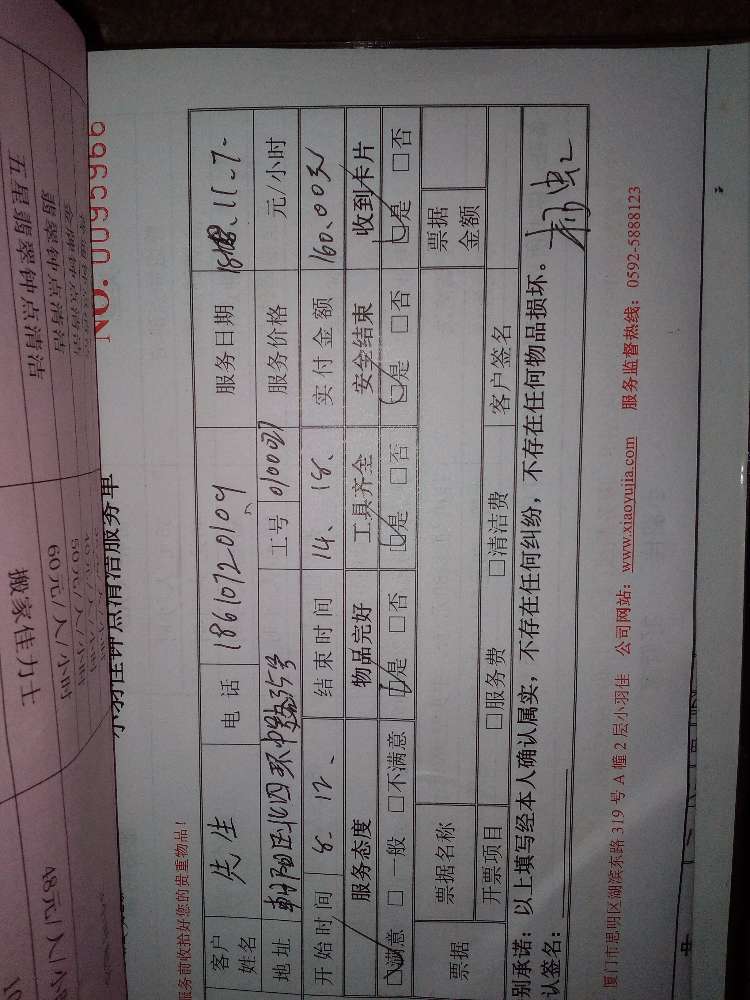 小羽佳钟点清洁服务单
NO. 0095966
服务前收拾好您的贵重物品！
客户姓名 先生 电话 18610720109 服务日期
地址 工号 服务价格 元/小时
开始时间 8.12. 结束时间 14.18. 实付金额 160.00元
服务态度 物品完好 工具齐全 安全结束 收到卡片
□满意 □一般 □不满意 □是 □否 □是 □否 □是 □否 □是 □否
票据 票据名称 票据金额
开票项目 □服务费 □清洁费 客户签名
别承诺：以上填写经本人确认属实，不存在任何纠纷，不存在任何物品损坏。
认签名：
厦门市思明区湖滨东路 319 号 A 幢 2 层小羽佳 公司网站：www.xiaoyujia.com 服务监督热线：0592-5888123
五星翡翠钟点清洁
翡翠钟点清洁
60元/人/小时
50元/人/小时
搬家佳力士
48元/人/小